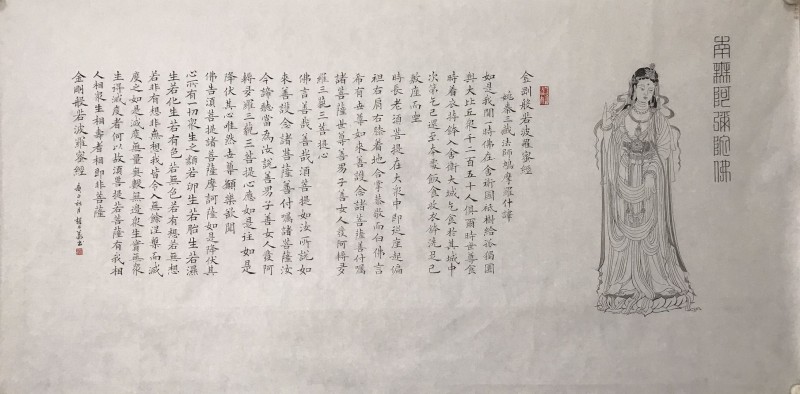 南無阿彌陀佛
金剛般若波羅蜜經
姚秦三藏法師鳩摩羅什譯
如是我聞一時佛在舍衛國祇樹給孤獨園
與大比丘衆千二百五十人俱爾時世尊食
時着衣持鉢入舍衛大城乞食於其城中
次第乞已還至本處飯食訖收衣鉢洗足已
敷座而坐
時長老須菩提在大衆中即從座起偏
袒右肩右膝着地合掌恭敬而白佛言
希有世尊如來善護念諸菩薩善付囑
諸菩薩世尊善男子善女人發阿耨多
羅三藐三菩提心
佛言善哉善哉須菩提如汝所説如
來善護念諸菩薩善付囑諸菩薩汝
今諦聽當為汝説善男子善女人發阿
耨多羅三藐三菩提心應如是住如是
降伏其心唯然世尊願樂欲聞
佛告須菩提諸菩薩摩訶薩如是降伏其
心所有一切衆生之類若卵生若胎生若濕
生若化生若有色若無色若有想若無想
若非有想非無想我皆令入無餘涅槃而滅
度之如是滅度無量無數無邊衆生實無衆
生得滅度者何以故須菩提若菩薩有我相
人相衆生相壽者相即非菩薩
金剛般若波羅蜜經